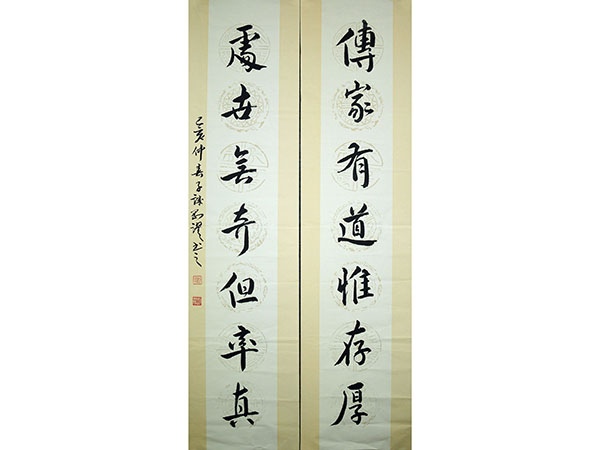 傳家有道惟存厚
處世無奇但率真
己亥仲春子